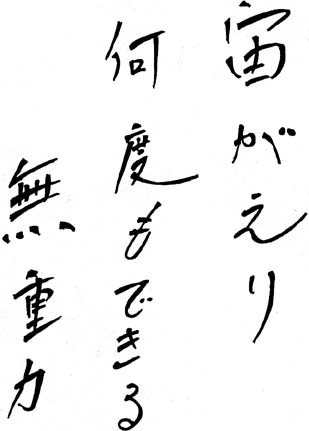 宙がえり
何度もできる
無重力